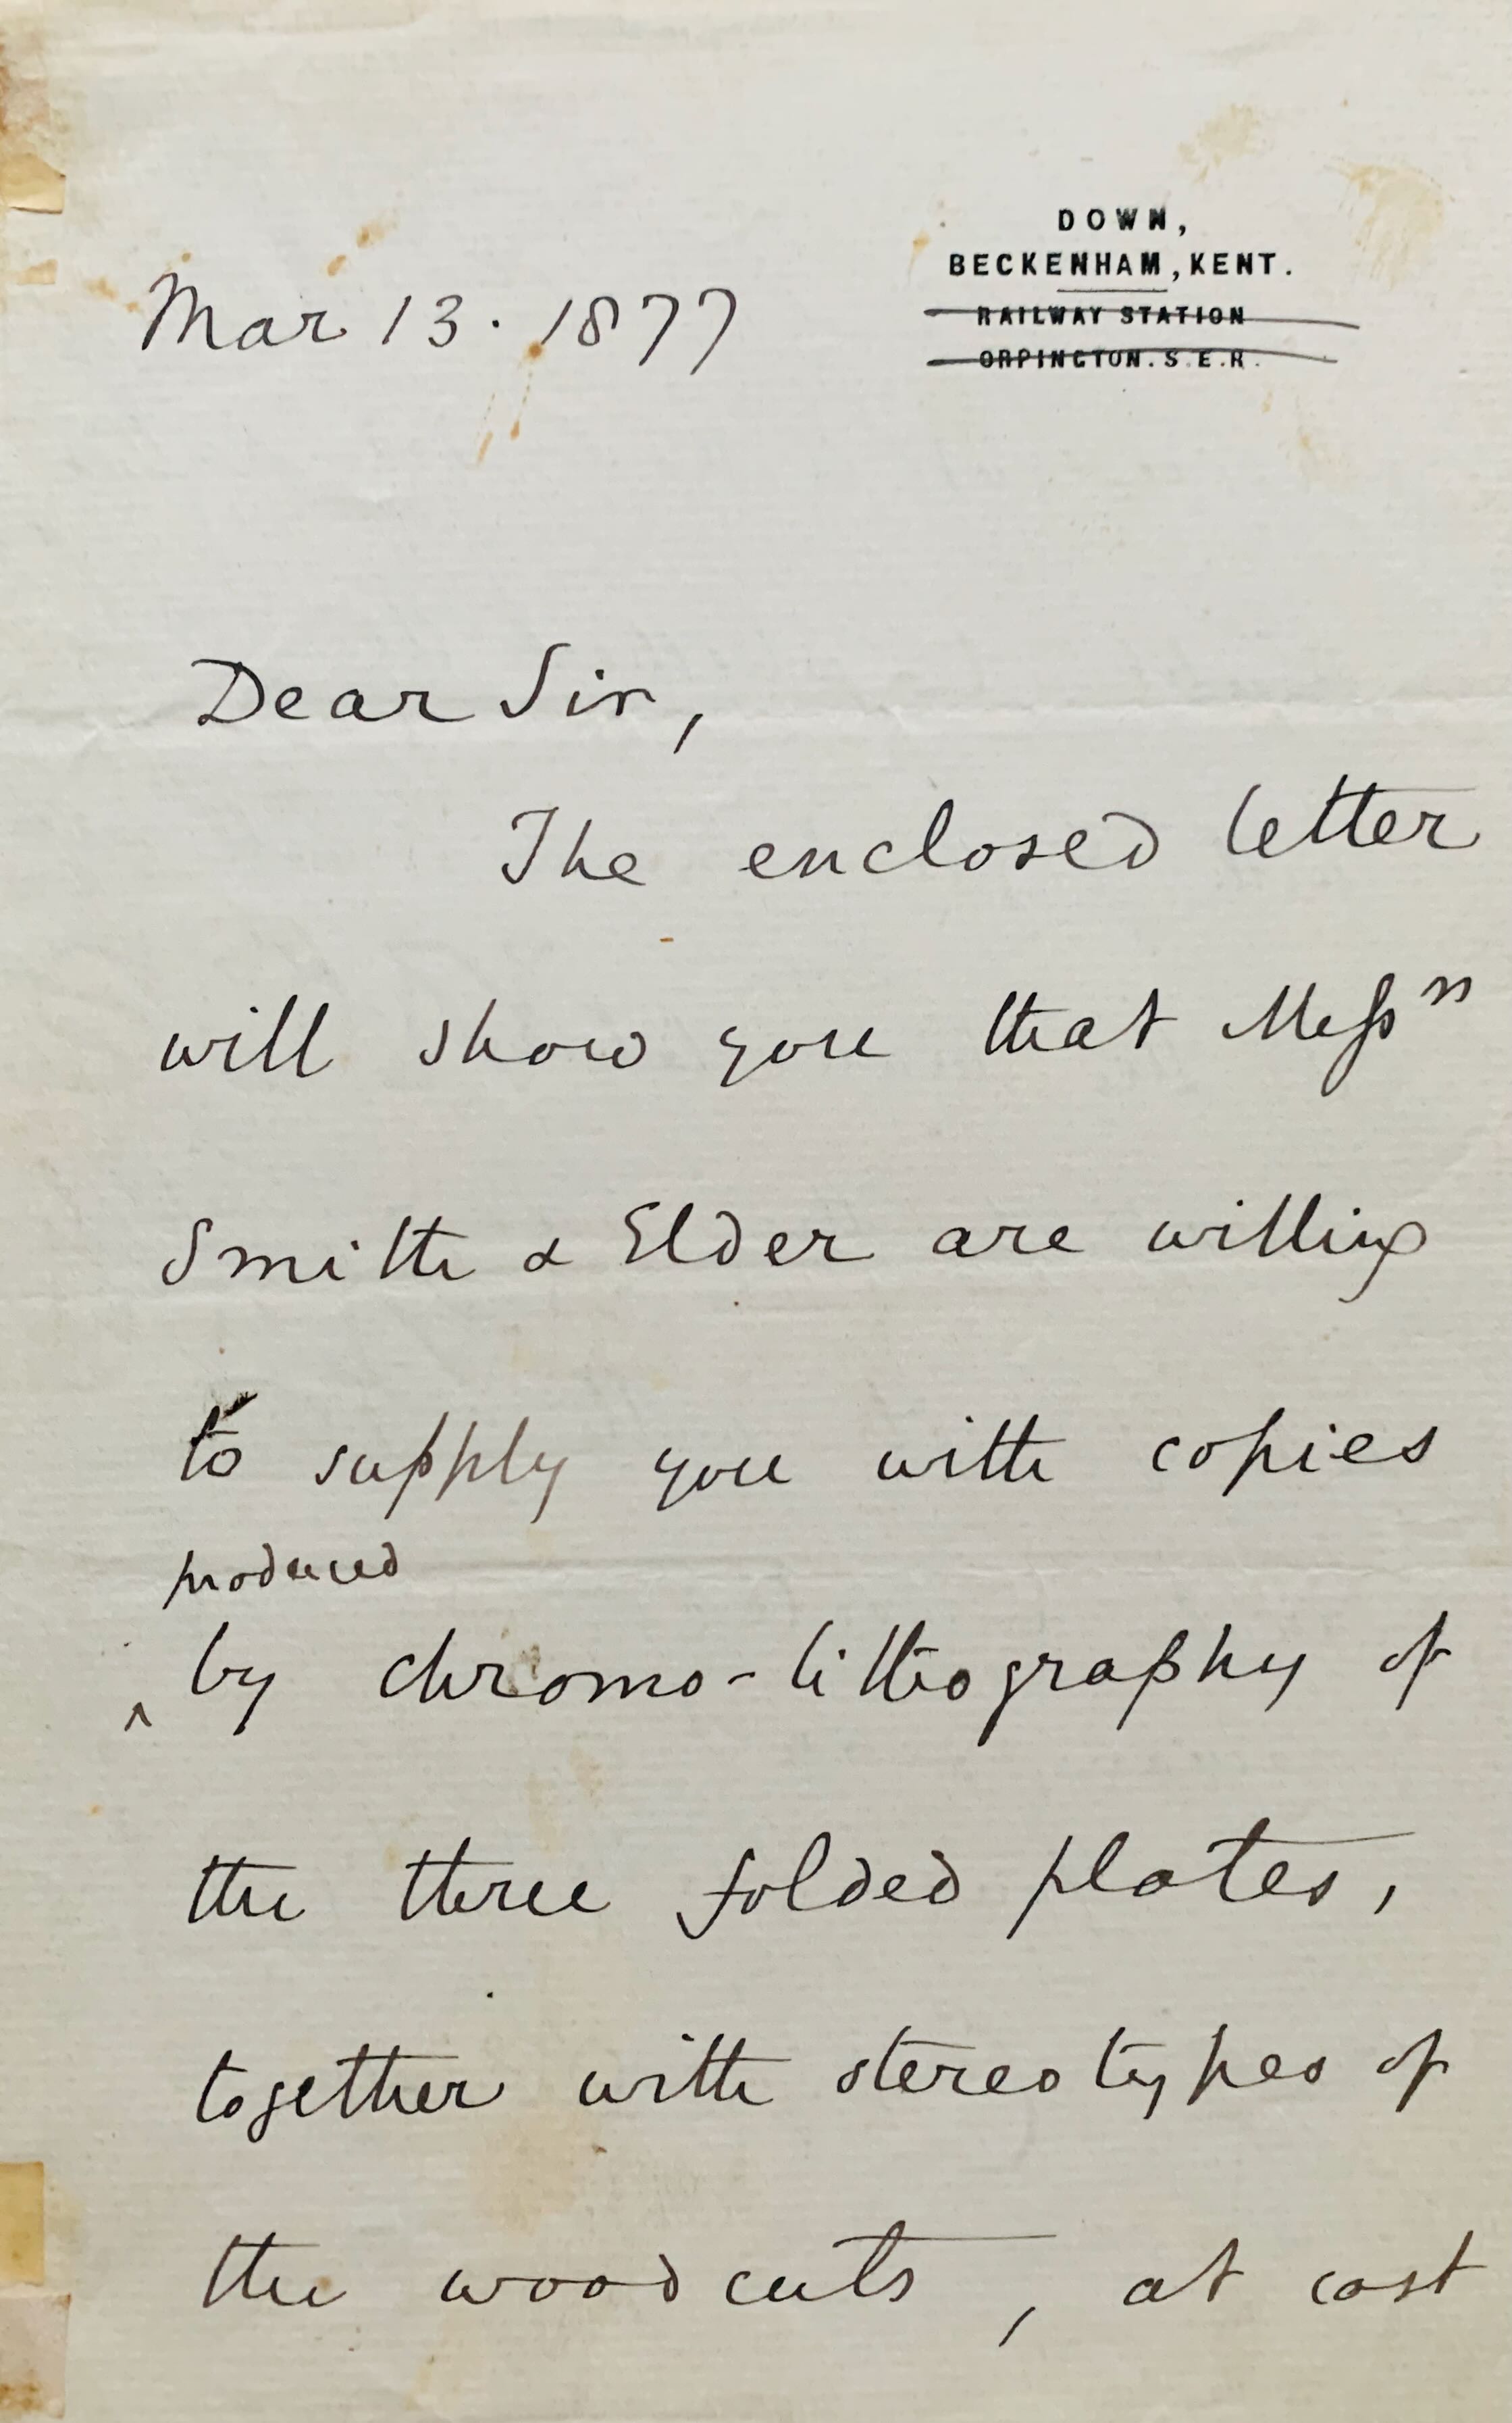 DOWN,
BECKENHAM, KENT.
RAILWAY STATION
ORPINGTON. S. E. R.
Mar 13. 1877
Dear Sir,
The enclosed letter
will show you that Messrs
Smith & Elder are willing
to supply you with copies
produced
^ by chromo-lithography of
the three folded plates,
together with stereotypes of
the woodcuts, at cost